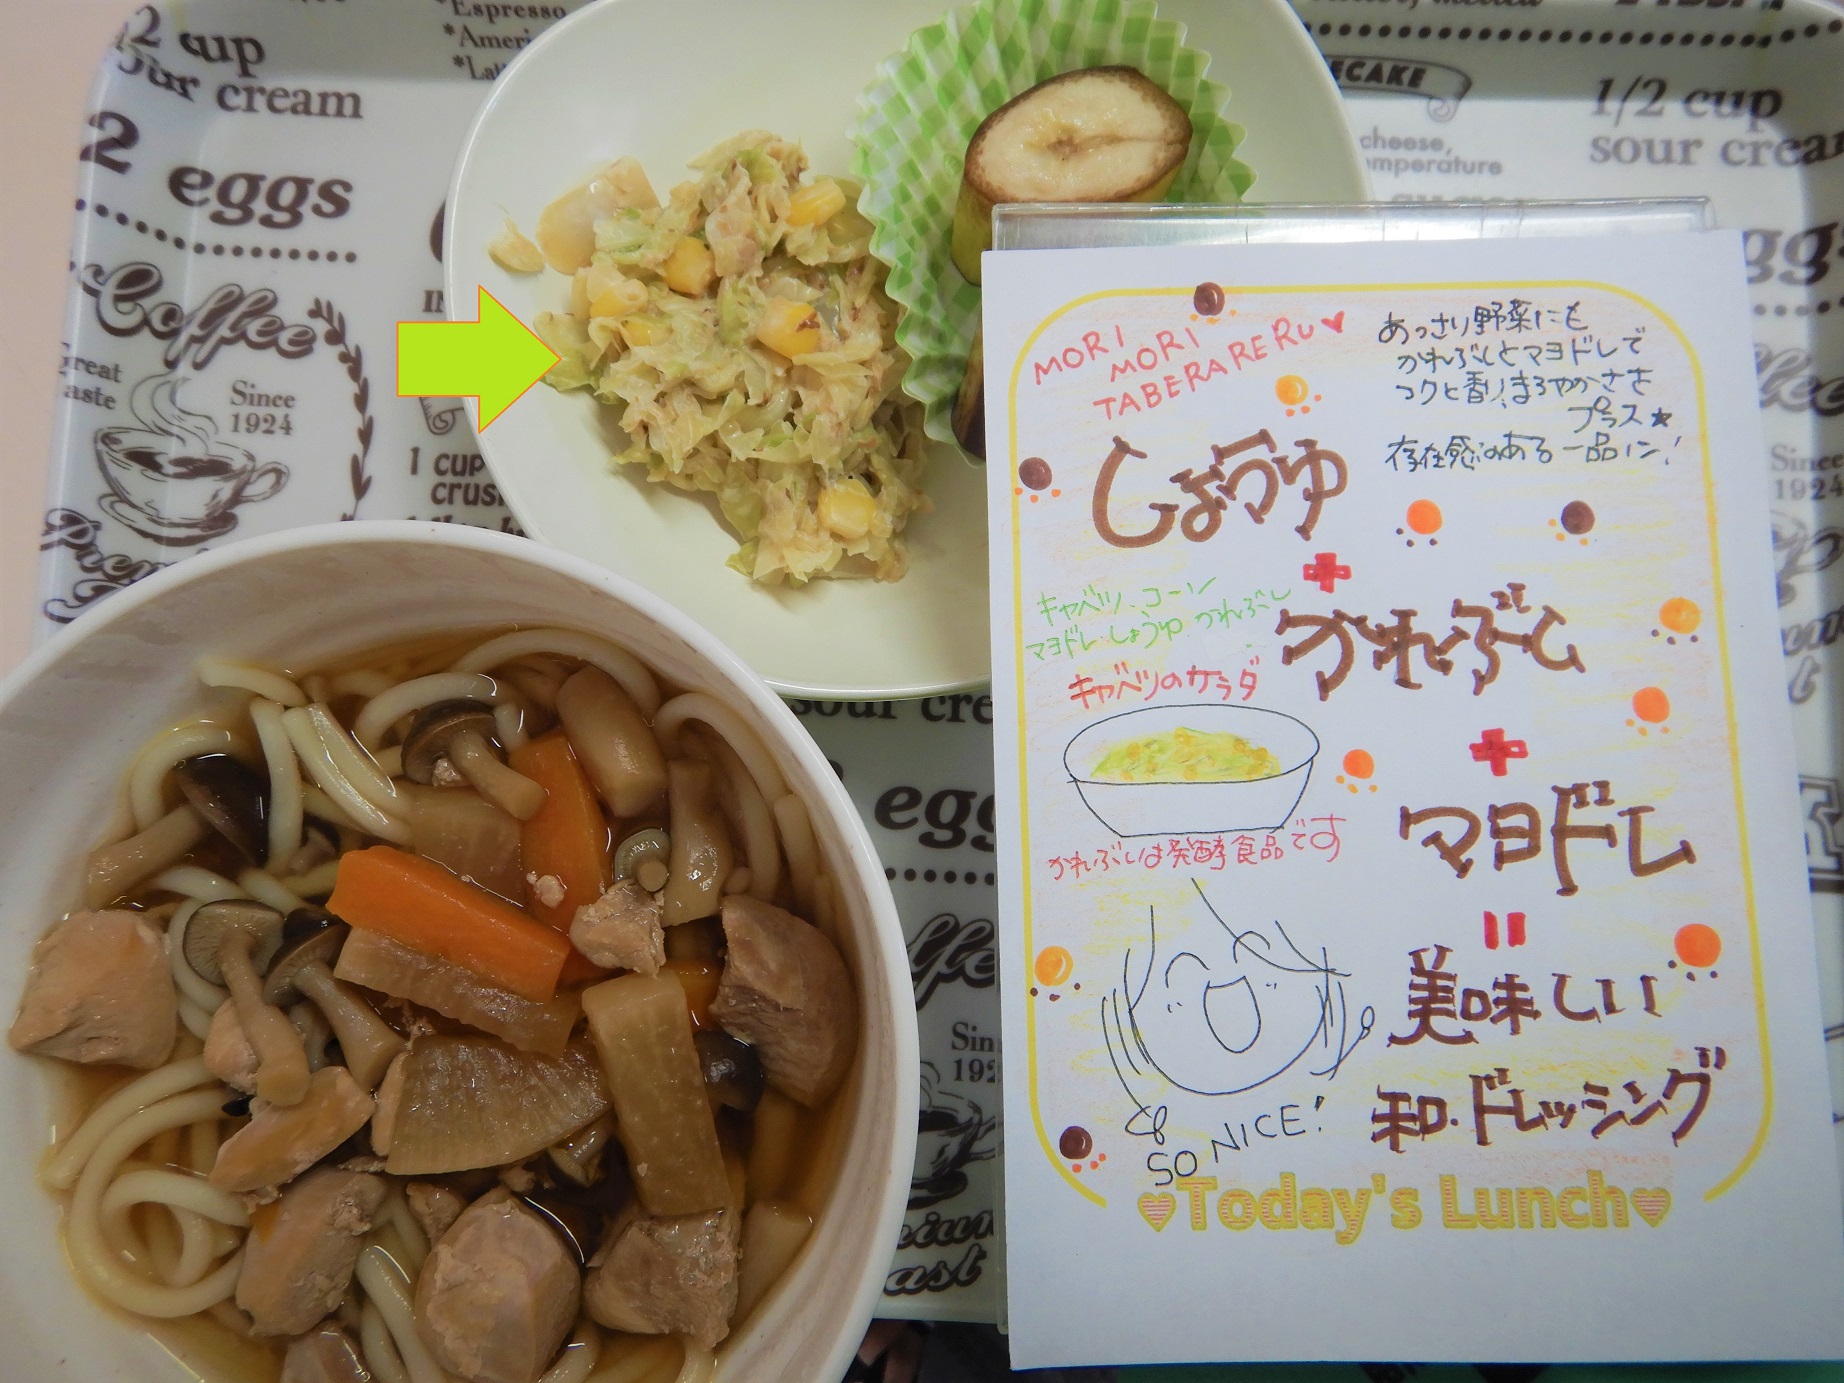 2 cup
our cream
2 eggs
Coffee
Great
taste
Since
1924
*Espresso
1 CUP
1/2 cup
sour cream
cheese,
MORI
MORI
TABERARERU♥
あっさり野菜にも
かれぶしとマヨドレで
コクと香り、まろやかささ
プラス★
存在感のある一品に!
しょうゆ
+
かれぶし
+
マヨドレ
=
美味しい
和・ドレッシング
キャベツ、コーン
マヨドレ、しょうゆ、かれぶし
キャベツのサラダ
かれぶしは発酵食品です
SO NICE!
♥Today's Lunch♥